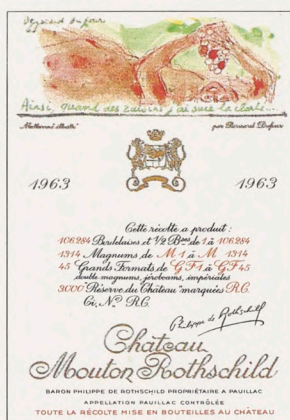 Bernard Dufour
Ainsi, quand des raisins j'ai sucé la clarté...
Mallarmé illustré par Bernard Dufour
1963 1963
Cette récolte a produit :
106284 Bordelaises et ½ Bses de 1 à 106284
1314 Magnums de M 1 à M 1314
45 Grands Formats de G F 1 à G F 45
double magnums, jéroboams, impériales
3000 "Réserve du Château" marquées R.C.
Ci, No R.C.
Philippe de Rothschild
Château
Mouton Rothschild
BARON PHILIPPE DE ROTHSCHILD PROPRIÉTAIRE A PAUILLAC
APPELLATION PAUILLAC CONTRÔLÉE
TOUTE LA RÉCOLTE MISE EN BOUTEILLES AU CHÂTEAU